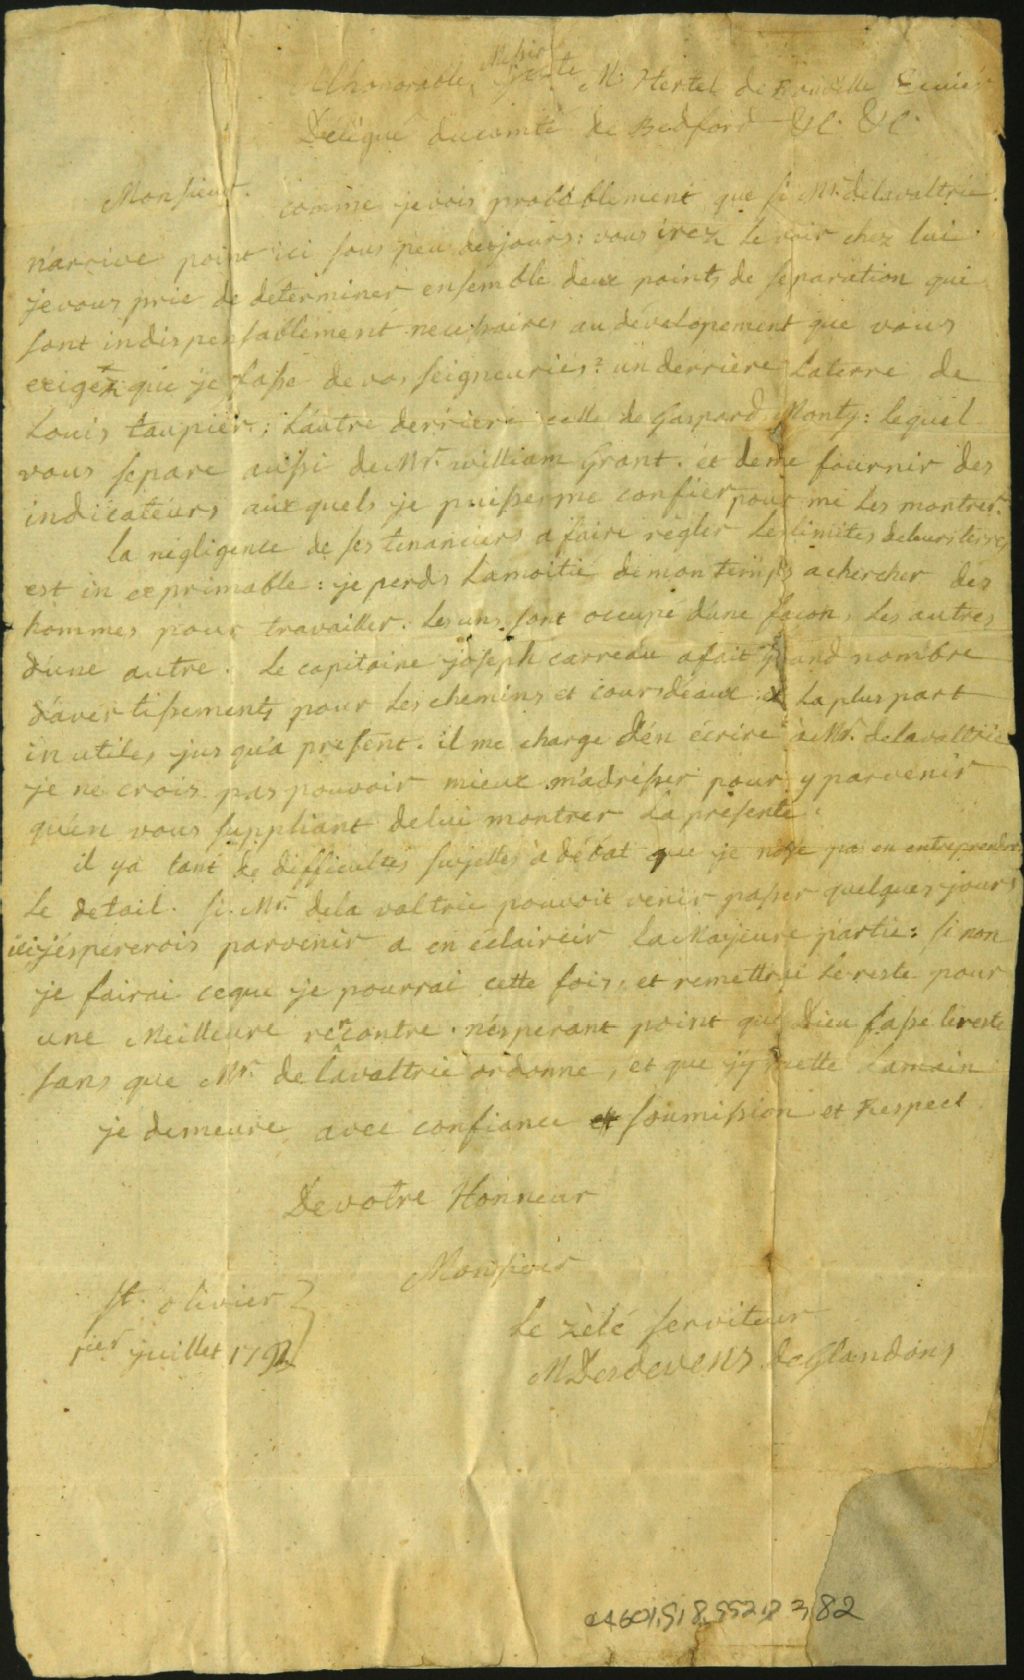 Messir
A lhonorable, M: Hertel de Rouville Ecuier
Délégué ducomté de Bedford &c. &c.
Monsieur. comme je vois probablement que si Mr. delavaltrie
n'arrive point ici sous peu desjours: vous irez le voir chez lui.
jevous prie de déterminer ensemble deux points de separation qui
sont indispensablement necessaires au dévelopement que vous
exigez que je fasse de vos seigneuries: un derrière laterre de
Louis taupier; l'autre derriere celle de Gaspard Monty: lequel
vous separe aussi de Mr. william Grant. et deme fournir des
indicateurs auxquels je puisse me confier pour me les montrer.
la négligence de ses tenanciers a faire régler les limites deleurs terres
est in exprimable: je perds lamoitié demon temps achercher des
hommes pour travailler. les uns sont occupé d'une façon, les autres
d'une autre. le capitaine joseph carreau afait grand nombre
d'avertissements pour les chemins et coursdéaux. la plus part
in utiles jusqu'a present. il me charge d'én écrire à Mr. delavaltrie
je ne crois pas pouvoir mieux m'adresser pour y parvenir
qu'en vous suppliant delui montrer la présente.
il ya tant de difficultés sujettes à débat que je nose pa en entreprendre
le detail. si Mr. dela valtrie pouvoit venir passer quelques jours
ici j'éspérerois parvenir a en éclaircir la Majeure partie: si non
je fairai ceque je pourrai cette fois, et remettrai le reste pour
une Meilleure recontre. n'ésperant point que Dieu fasse lereste
sans que Mr. de lavaltrie ordonne, et que j'y mette lamain
je demeure avec confiance soumission et Respect
De votre Honneur
Monsieur
St. olivier
1ier juillet 179
le zèlé serviteur
M Desdevens de Glandons